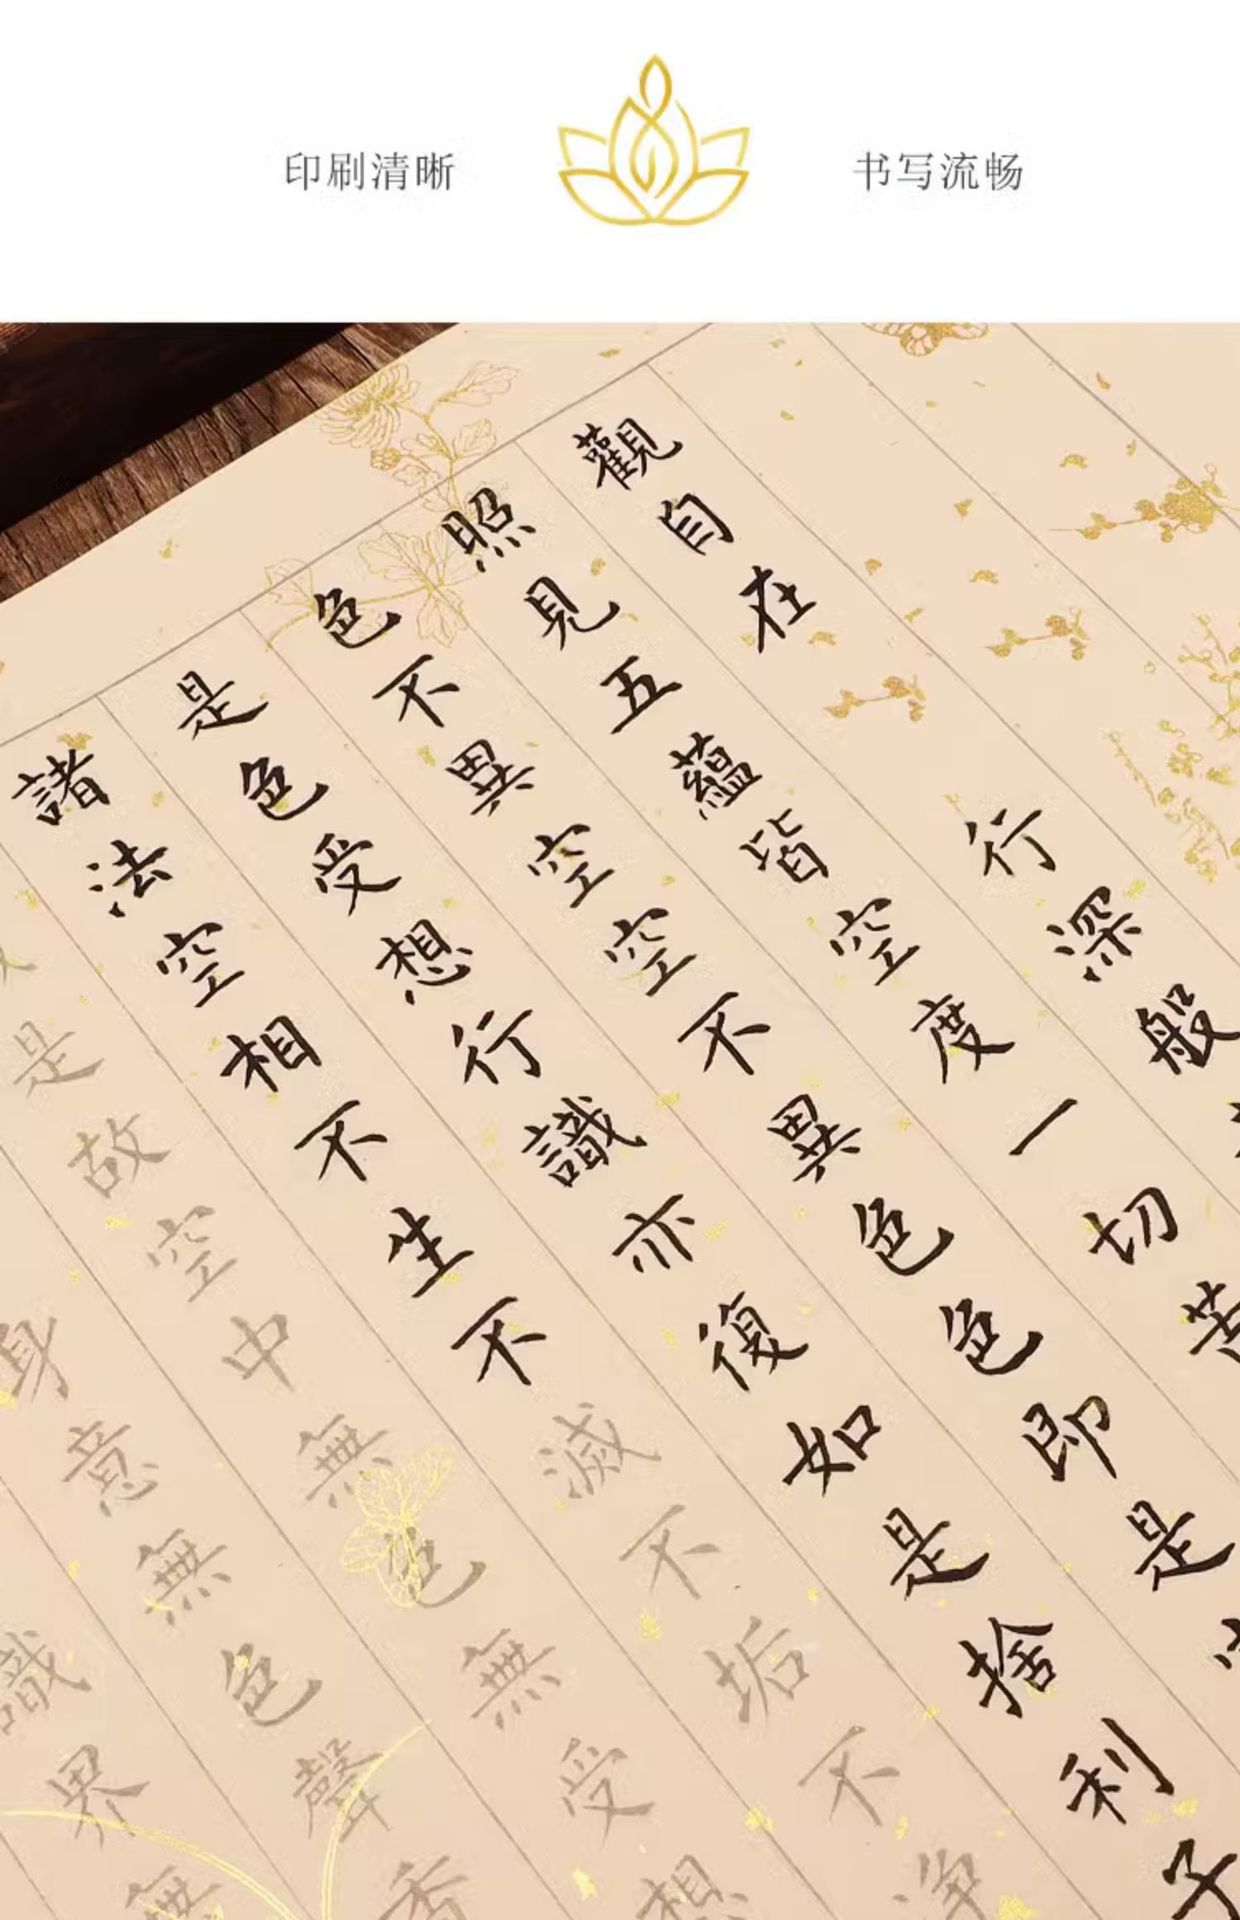 印刷清晰
书写流畅
觀自在行深般
照見五蘊皆空度一切苦
色不異空空不異色色即是
是色受想行識亦復如是捨利子
諸法空相不生不滅不垢不淨
是故空中無色無受想
身意無色聲香
識界無